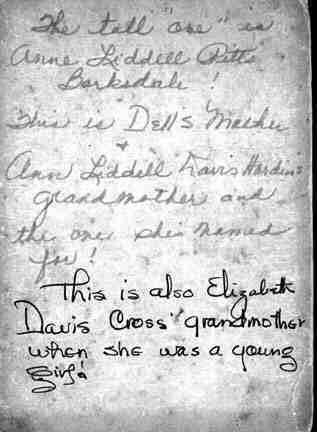 The tall "one" is
Anne Liddell Pitts
Barksdale!
This is Dell's Mother
&
Ann Liddell Davis Hardin's
grandmother and
the one she's named
for!
This is also Elizabeth
Davis Cross' grandmother
when she was a young
girl!